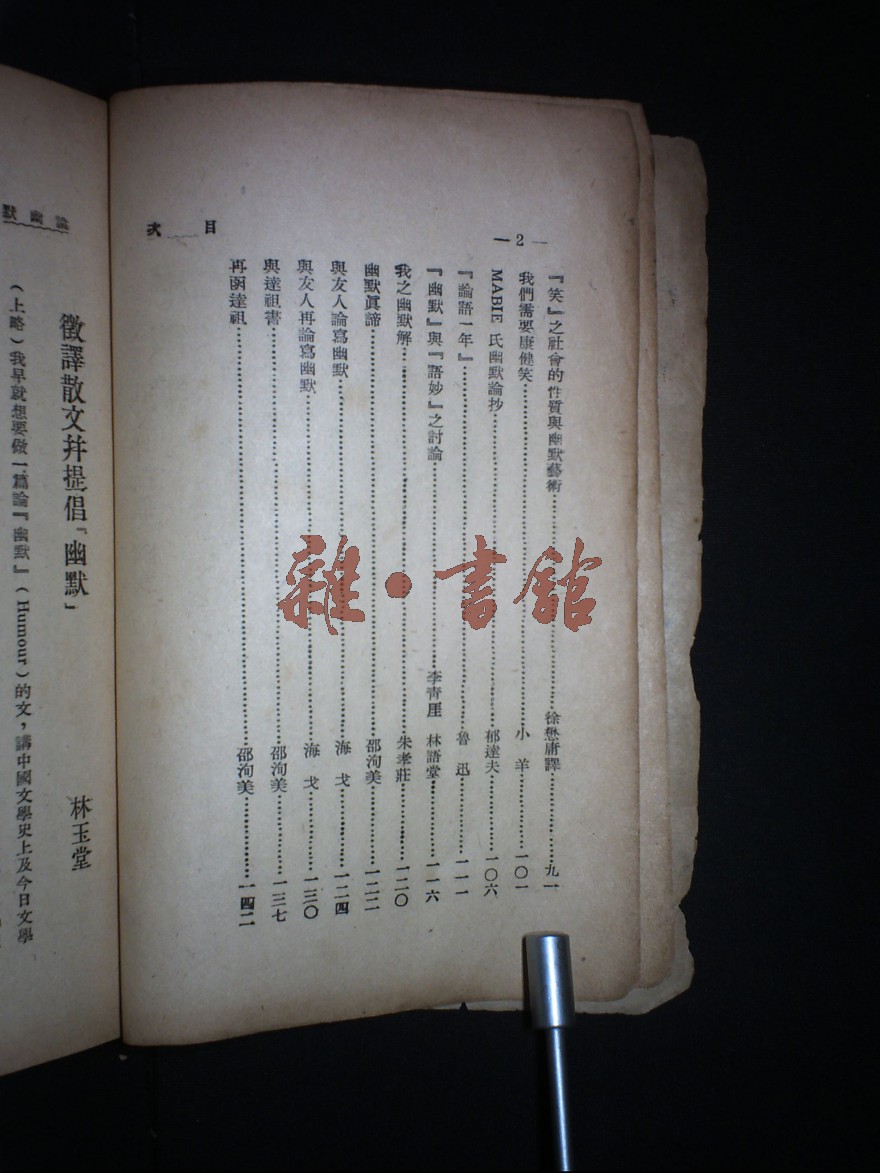 — 2 —
目　次
『笑』之社會的性質與幽默藝術……徐懋庸譯……九一
我們需要康健笑……小　羊……一〇一
MABIE 氏幽默論抄……郁達夫……一〇六
『論語一年』……魯　迅……一一一
『幽默』與『語妙』之討論……李青厓　林語堂……一一六
我之幽默解……朱孝莊……一二〇
幽默眞諦……邵洵美……一二二
與友人論寫幽默……海　戈……一二四
與友人再論寫幽默……海　戈……一三〇
與達祖書……邵洵美……一三七
再函達祖……邵洵美……一四二
論幽默
徵譯散文并提倡「幽默」
林玉堂
（上略）我早就想要做一篇論『幽默』（Humour）的文，講中國文學史上及今日文學
雜·書館